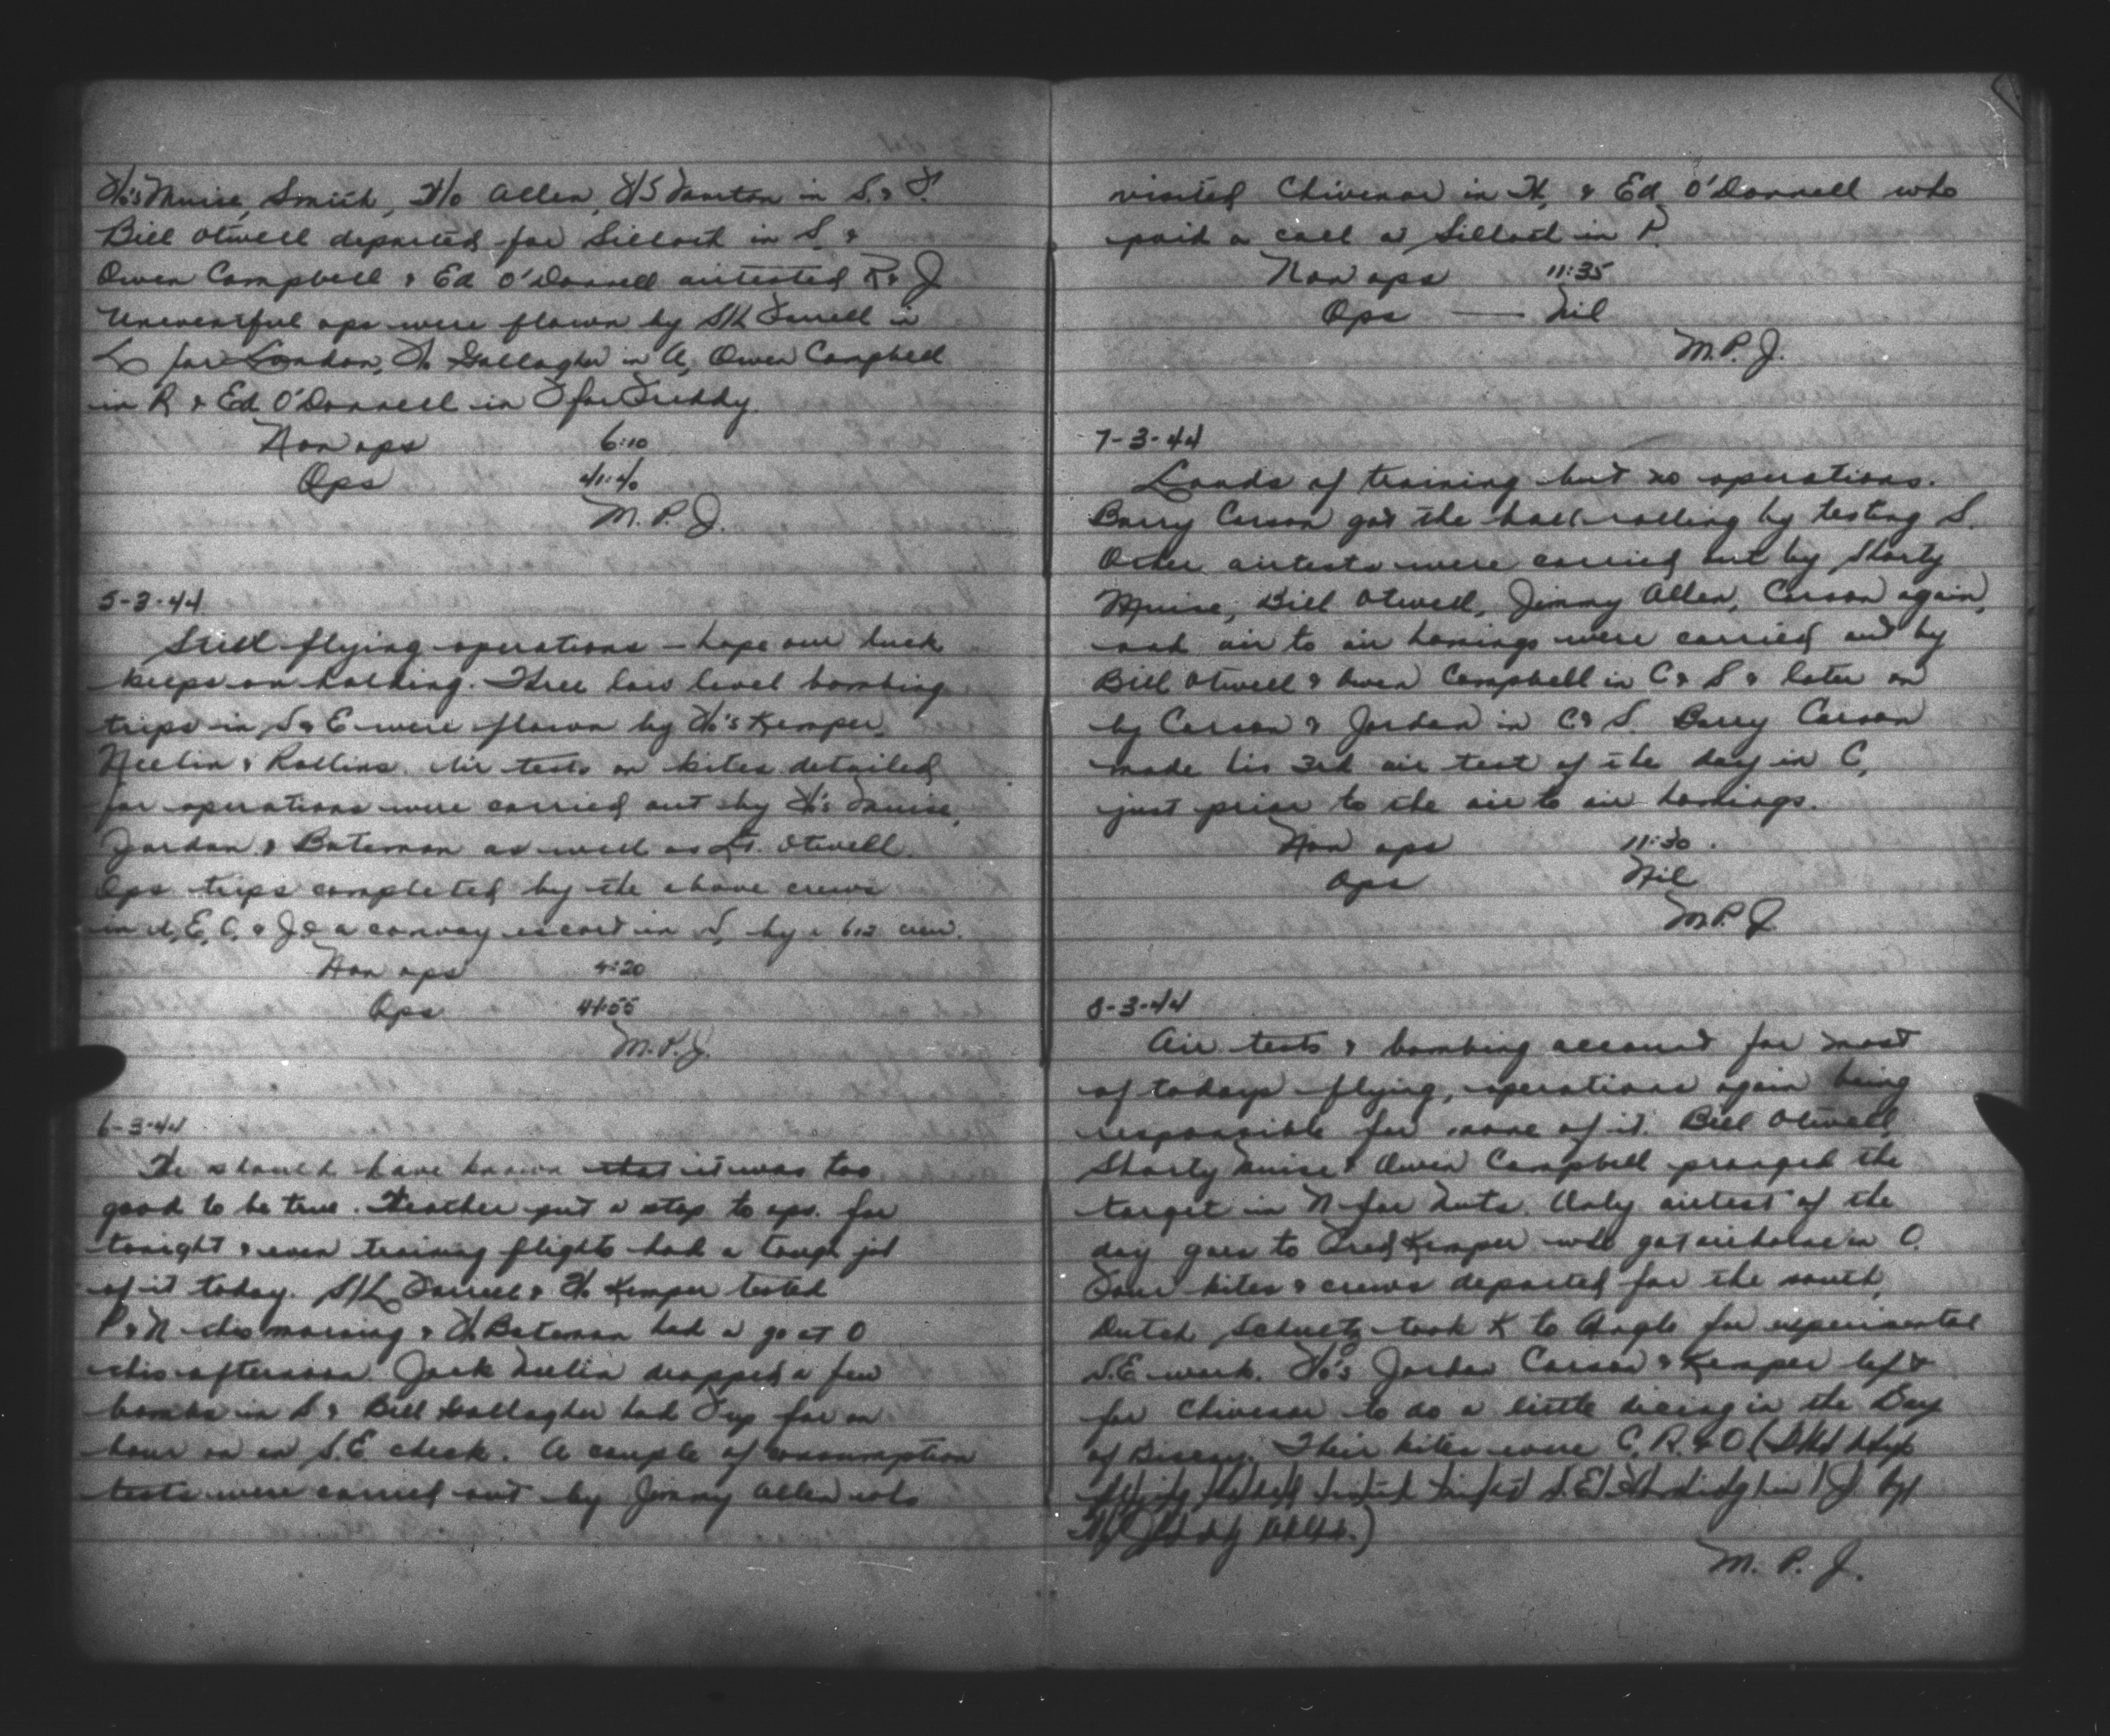 F/O's Muise, Smith, F/O Allen, F/S Martin in S. & F.
Bill Otwell departed for Silloth in S. &
Owen Campbell & Ed O'Donnell airtested R & J
Uneventful ops were flown by S/L Farrell in
L for London, F/O Gallagher in A, Owen Campbell
in R & Ed O'Donnell in F for Freddy.
Non ops 6:10
Ops 41:40
M. P. J.
5-3-44
Still flying operations – hope our luck
keeps on holding. Three low level bombing
trips in S & E were flown by F/O's Kemper,
Neelin & Rollins. Air tests on kites detailed
for operations were carried out by F/O's Muise,
Jordan & Bateman as well as Lt. Otwell.
Ops trips completed by the above crews
in A, E, C, & J & a convoy escort in S, by a 612 crew.
Non ops 4:20
Ops 44:55
M. P. J.
6-3-44
We should have known that it was too
good to be true. Weather put a stop to ops. for
tonight & even training flights had a tough job
of it today. S/L Farrell & F/O Kemper tested
P & N this morning & F/O Bateman had a go at O
this afternoon. Jack Neelin dropped a few
bombs in S & Bill Gallagher had F up for an
hour on an S.E. check. A couple of consumption
tests were carried out by Jimmy Allen who
visited Chivenor in H, & Ed O'Donnell who
paid a call a Silloth in P.
Non ops 11:35
Ops — Nil
M. P. J.
7-3-44
Loads of training but no operations.
Barry Carson got the ball rolling by testing S.
Other airtests were carried out by Shorty
Muise, Bill Otwell, Jimmy Allen, Carson again,
and air to air homings were carried out by
Bill Otwell & Owen Campbell in C & S & later on
by Carson & Jordan in C & S. Barry Carson
made his 3rd air test of the day in C,
just prior to the air to air homings.
Non ops 11:30
Ops Nil
M. P. J.
8-3-44
Air tests & bombing account for most
of todays flying, operations again being
responsible for none of it. Bill Otwell,
Shorty Muise & Owen Campbell pranged the
target in N for Nuts. Only airtest of the
day goes to Fred Kemper who got airborne in O.
Four kites & crews departed for the south,
Dutch Schuetz took K to Angle for experimental
S.E. work. F/O's Jordan Carson & Kemper left
for Chivenor to do a little dicing in the Bay
of Biscay. Their kites were C, R & O (
S.E. in J by
M. P. J.